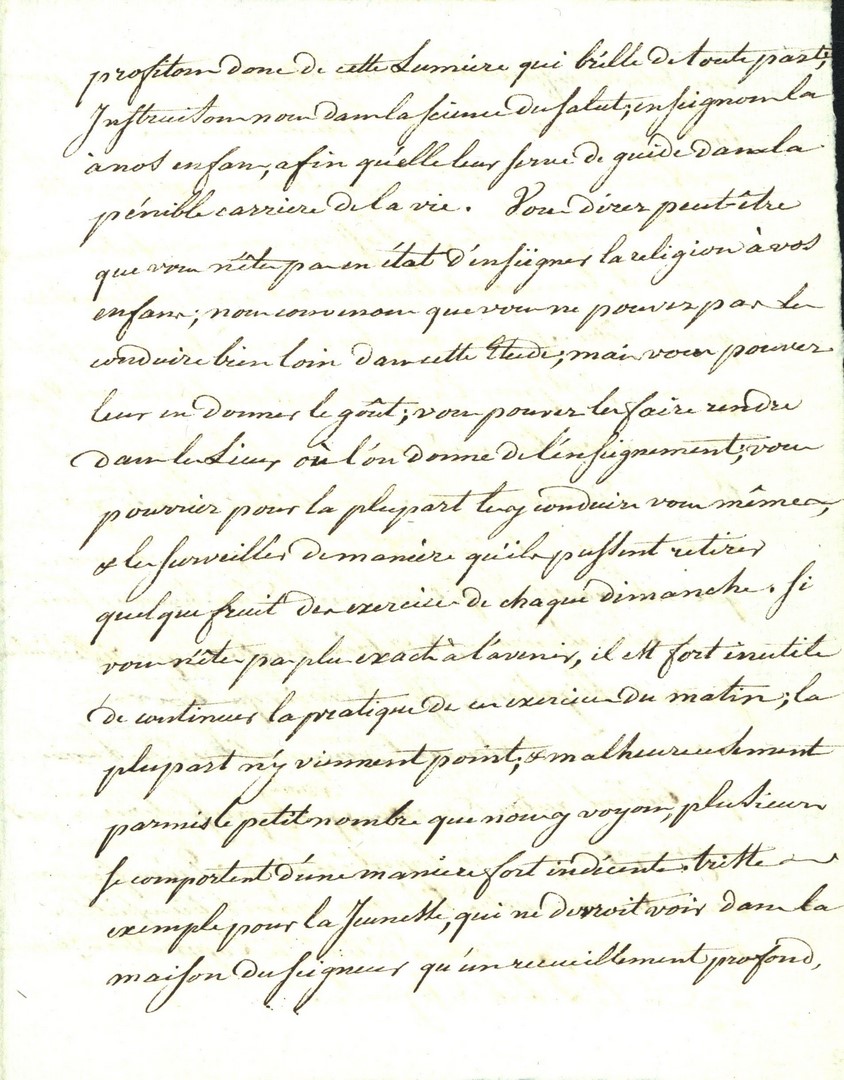 profitons donc de cette Lumiere qui brille de toute parts,
Instruisons nous dans la science du salut; enseignons la
à nos enfans, afin qu'elle leur serve de guide dans la
pénible carriere de la vie. Vous direz peut-être
que vous n'êtes pas en état d'enseigner la religion à vos
enfans; nous convenons que vous ne pouvez pas les
conduire bien loin dans cette Etude; mais vous pouvez
leur en donner le goût; vous pouvez les faire rendre
dans les Lieux où l'on donne de l'enseignement; vous
pourriez pour la plupart les y conduire vous mêmes,
& les surveiller de manière qu'ils pussent retirer
quelque fruit des exercices de chaque dimanche. Si
vous n'êtes pas plus exacts à l'avenir, il est fort inutile
de continuer la pratique de ces exercices du matin; la
plupart n'y viennent point; & malheureusement
parmis le petit nombre que nous y voyons, plusieurs
se comportent d'une maniere fort indécente. triste
exemple pour la Jeunesse, qui ne devroit voir dans la
maison du Seigneur qu'un recueillement profond,